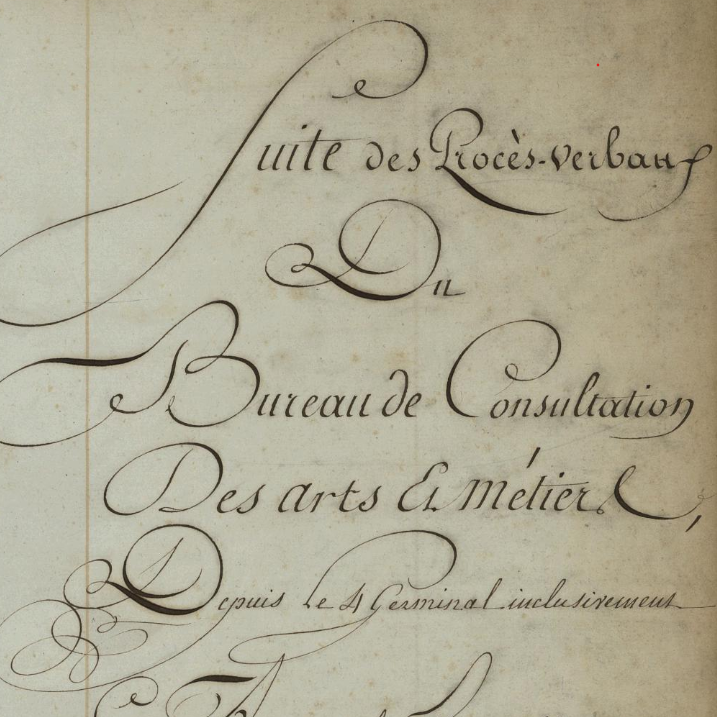 Suite des Procès-verbaux
Du
Bureau de Consultation
Des arts Et métiers,
Depuis Le 4 Germinal inclusivement